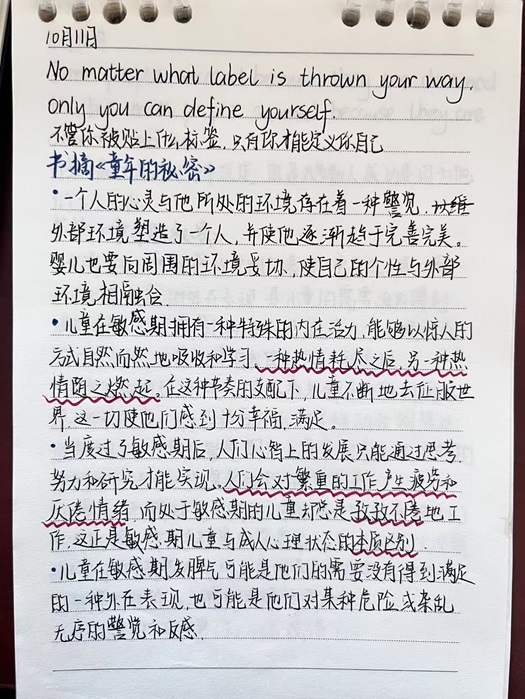 10月11日
No matter what label is thrown your way.
only you can define yourself.
不管你被贴上什么标签,只有你才能定义你自己
书摘《童年的秘密》
·一个人的心灵与他所处的环境存在着一种警觉,
外部环境塑造了一个人,并使他逐渐趋于完善完美。
婴儿也要向周围的环境妥切,使自己的个性与外部
环境相融合.
·儿童在敏感期拥有一种特殊的内在活力,能够以惊人的
方式自然而然地吸收和学习.一种热情耗尽之后,另一种热
情随之燃起.在这种节奏的支配下,儿童不断地去征服世
界.这一切使他们感到十分幸福,满足。
·当度过了敏感期后,人们心智上的发展只能通过思考.
努力和研究才能实现.人们会对繁重的工作产生疲劳和
厌倦情绪.而处于敏感期的儿童却总是孜孜不倦地工
作.这正是敏感期儿童与成人心理状态的本质区别.
·儿童在敏感期发脾气可能是他们的需要没有得到满足
的一种外在表现,也可能是他们对某种危险或杂乱
无序的警觉和反感.